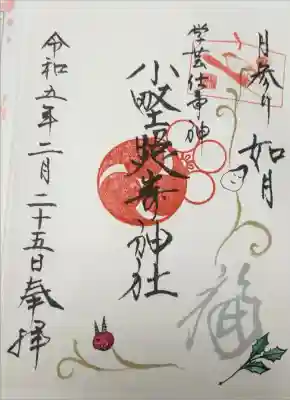 月参り
如月
学芸仕事神
小野照崎神社
福
令和五年二月二十五日奉拝